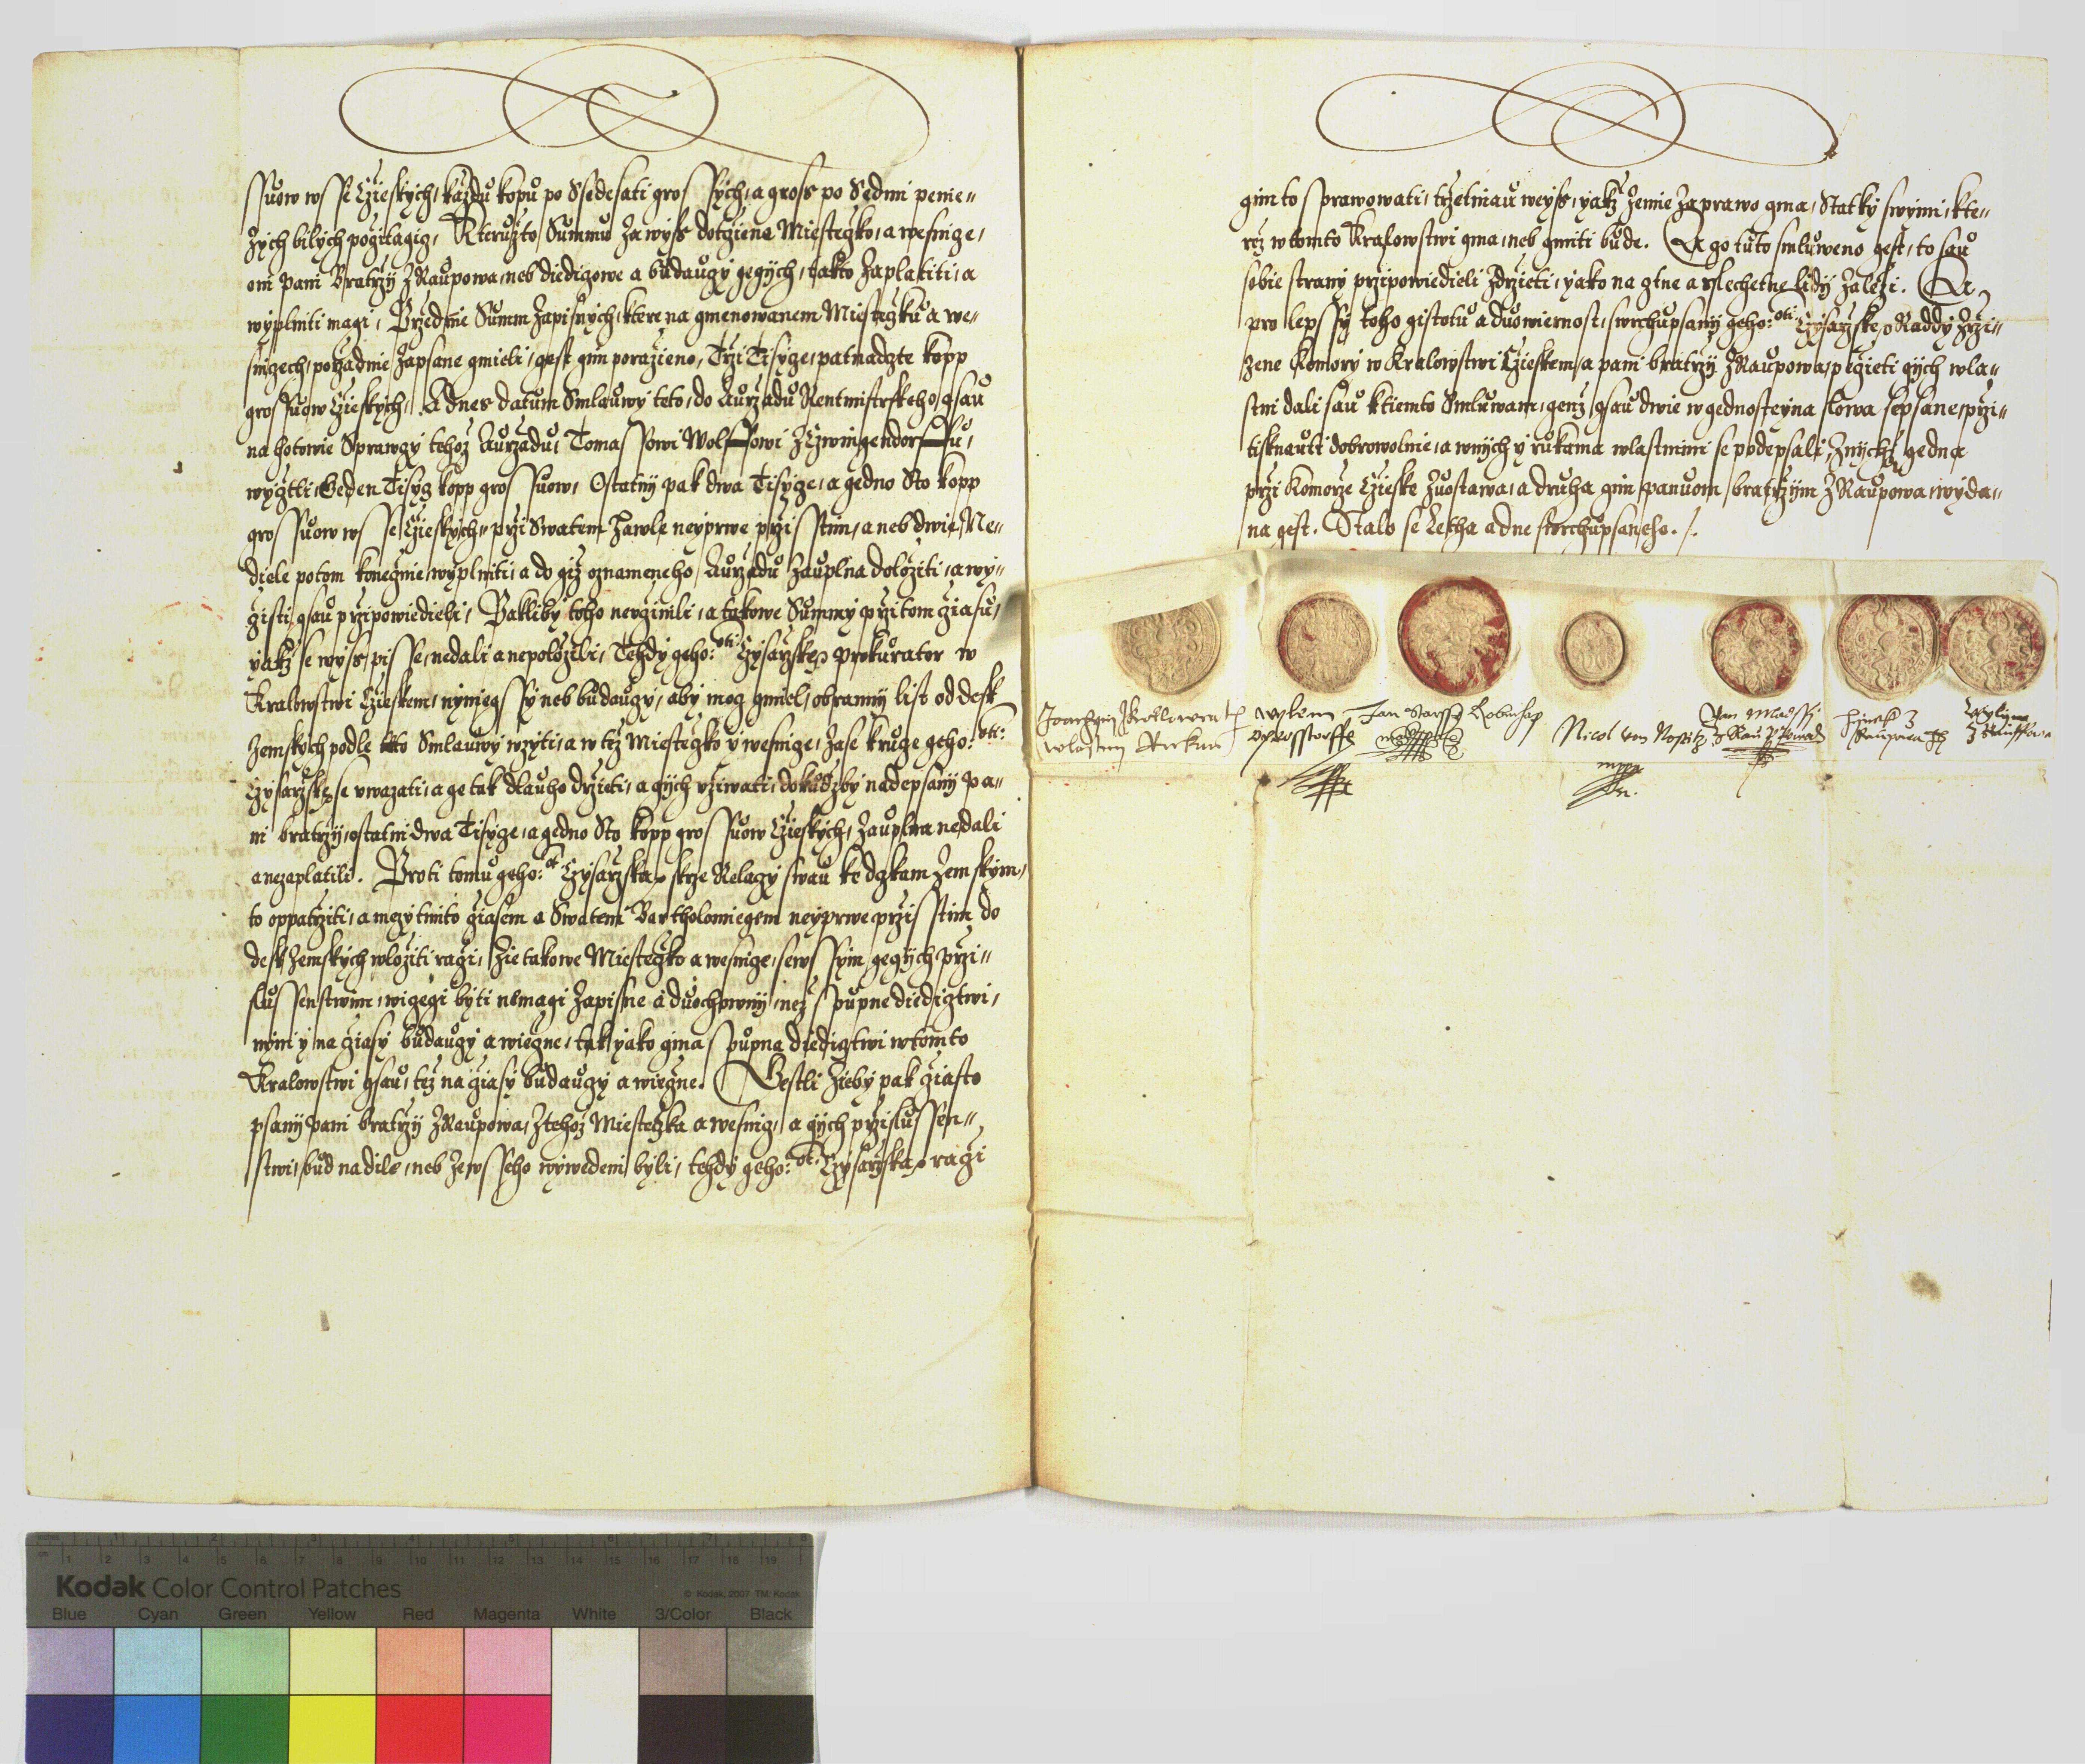 ssuow wsse Cżieskych, každu kopu po Ssedesati grossych, a gross po Sedmi penie„
zych bilych pocżitagicz, Kteružto Summu za wyss dotcżene Miestecżko, a wesnicze,
oni Pani Bratrzy Z Raupowa, neb diediczowe a budauczy gegych, takto Zaplatiti, a
wyplniti magi, Przedkie Summ Zapisnych, ktere na gmenowanem Miestecżku a we„
sniczech, porzadnie Zapsane gmieli, gest gim porażeno, Trzi Tisycze, patnadczte kopp
grossuow Cżieskych, A dnes datum Smlauwy teto, do Aurzadu Rentmistrskeho, gsau
na hotowie Sprawczy tehoż Aurzadu, Tomassowi Wolffowi Z Czwingendorffu,
wycżtli, Geden Tisycz kopp grossuow, Ostatny pak dwa Tisycze, a gedno Sto kopp
grossuow wsse Cżieskych, przi Swatem Hawle neyprwe przisstim, a neb dwie Ne„
diele potom konecżnie wyplniti, a do giż oznameneho Aurzadu Zauplna doložiti, a wy„
cżisti, gsau przipowiedieli, Pakliby toho neucżinili, a takowe Summy przi tom cżiasu,
yakż se wyss pisse, nedali a nepoložili, Tehdy geho: Mti: Czysarzske prokurator w
Kralowstwi Cżieskem, nyniegssy neb budauczy, aby mocz gmiel, obranny list od desk
Zemskych podle teto Smlauwy wzyti, a w też Miestecżko y wesnicze, zase k rucze geho: Mti:
Czysarzske se uwazati, a ge tak dlauho držeti, a gich użiwati, dokudzby nadepsany pa„
ni bratrzy, ostatni dwa Tisycze, a gedno Sto kopp grossuow Cżieskych, Zauplna nedali
a nezaplatili. Proti tomu geho: Mt Czysarzska skrze Relaczy swau ke dczkam Zemskym,
to oppatrziti, a mezy timto cżiasem a Swatem Bartholomiegem neyprwe przisstim do
desk Zemskych wložiti racżi, że takowe Miestecżko a wesnicze, se wssym gegych przi„
slussenstwim, wicegi byti nemagi Zapisne a duochowny, neż Spupne diediczstwi,
nyni y na cżiasy budauczy a wiecżne, tak yako gina Spupna diediczstwi w tomto
Kralowstwi gsau, też na cżiasy budauczy a wiecżne. Gestli żeby pak cżiasto
psany Pani bratrzy Z Raupowa, Z tehoż Miestecżka a wesnicz, a gych przislussen„
stwi, bud na dile, neb ze wsseho wywedeni byli, tehdy geho: Mt: Czysarzska racżi
gim to sprawowati, trzetinau weyss, yakż Zemie Za prawo gma, Statky swymi, kte„
reż w tomto Kralowstwi gma, neb gmiti bude. A czo tuto smluweno gest, to sau
sobie strany przipowiedieli zdrżeti, yako na ctne a slechetne lidy Zależi. A
pro lepssy toho gistotu a duowiernost, swrchupsany geho: Mti: Czysarzske Raddy Zrzi„
zene Komory w Kralowstwi Cżieskem, a pani bratrzy Z Raupowa, pecżeti gych wla„
stni dali sau k tiemto Smluwam, genż gsau dwie w gednosteyna slowa sepsane, przi„
tisknauti dobrowolnie, a w nych y rukama wlastnimi se podepsali, Z nychżto gedna
przi Komorze Cżieske Zuostawa, a druha gim panuom bratrzym Z Raupowa, wyda„
na gest. Stalo se Letha a dne swrchupsaneho.
Joachym Z Kollowrat wylem Jan Starssy z Lobmhap Nicol von Nostitz Jan Mladssi Hynek Z
wlastny Rukau Opersstorffe mppa z Raupowa Raupowa
mppa